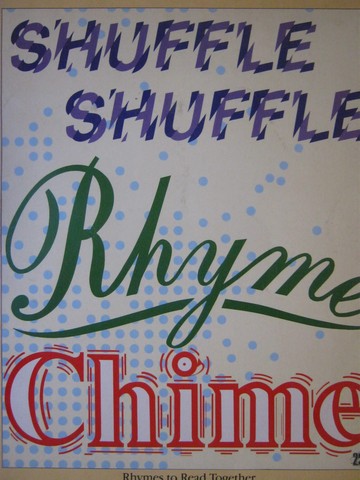 SHUFFLE
SHUFFLE
Rhyme
Chime
Rhymes to Read Together